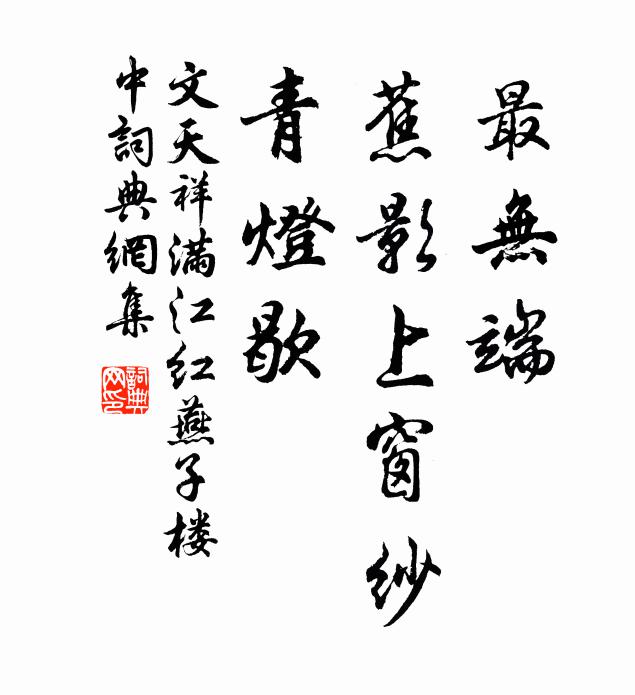 最無端
蕉影上窗紗
青燈歇
文天祥满江红燕子楼
中詞典網集
詞典网印